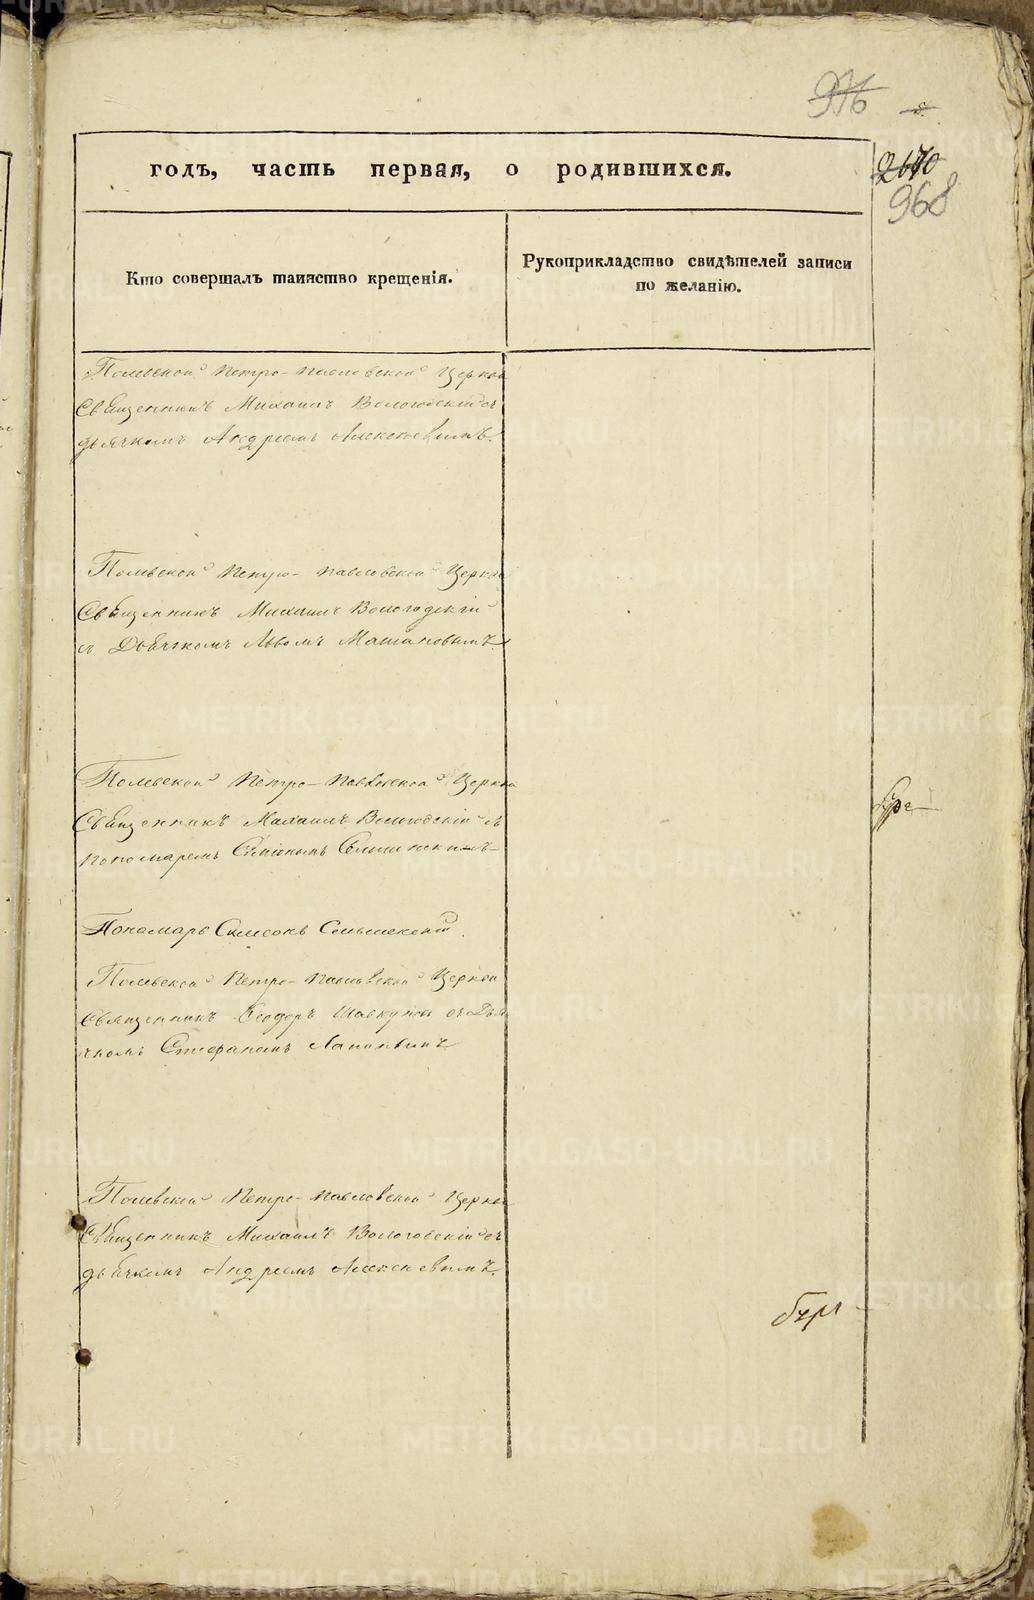 976
2670
968
годъ, часть первая, о родившихся.
Кто совершалъ таинство крещенія.
Рукоприкладство свидѣтелей записи
по желанію.
Полевской Петро-Павловской Церкви
Священникъ Михаилъ Вологодскій съ
дьячкомъ Андреемъ Алексеевымъ.
Полевской Петро-Павловской Церкви
Священникъ Михаилъ Вологодскій
съ Дьячкомъ Львомъ
Полевской Петро-Павловской Церкви
Священникъ Михаилъ Вологодскій съ
пономаремъ
Пономарь Симеонъ
Полевской Петро-Павловской Церкви
Священникъ Ѳеодоръ съ Дья
чкомъ Стефаномъ
Полевской Петро-Павловской Церкви
Священникъ Михаилъ Вологодскій съ
дьячкомъ Андреемъ Алексеевымъ.
METRIKI.GASO-URAL.RU